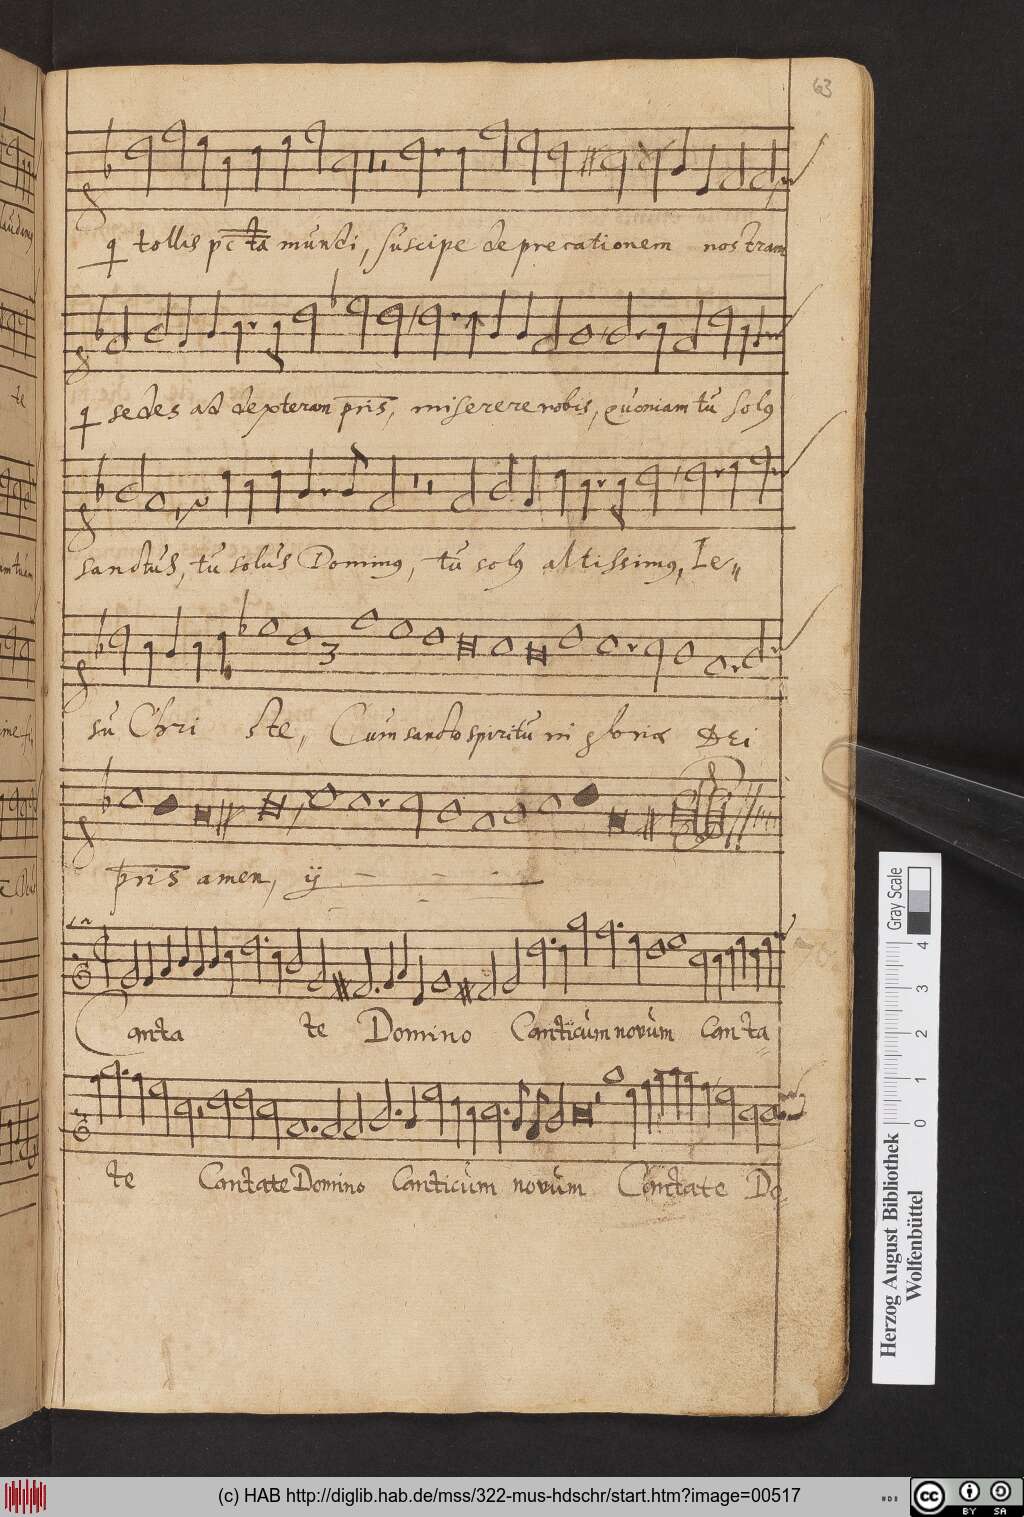 63
q tollis pc̄ta mundi, suscipe deprecationem nostram
q sedes ad dexteram pris, miserere nobis, quoniam tu solq
sanctus, tu solus Dominq, tu solq altissimq, Ie"
su Chri ste, Cum sancto spiritu in gloria Dei
3
pris amen, ij
Canta te Domino Canticum novum Canta
te Cantate Domino Canticum novum Cantate Do
Gray Scale
0 1 2 3 4
Herzog August Bibliothek
Wolfenbüttel
(c) HAB http://diglib.hab.de/mss/322-mus-hdschr/start.htm?image=00517
cc BY SA